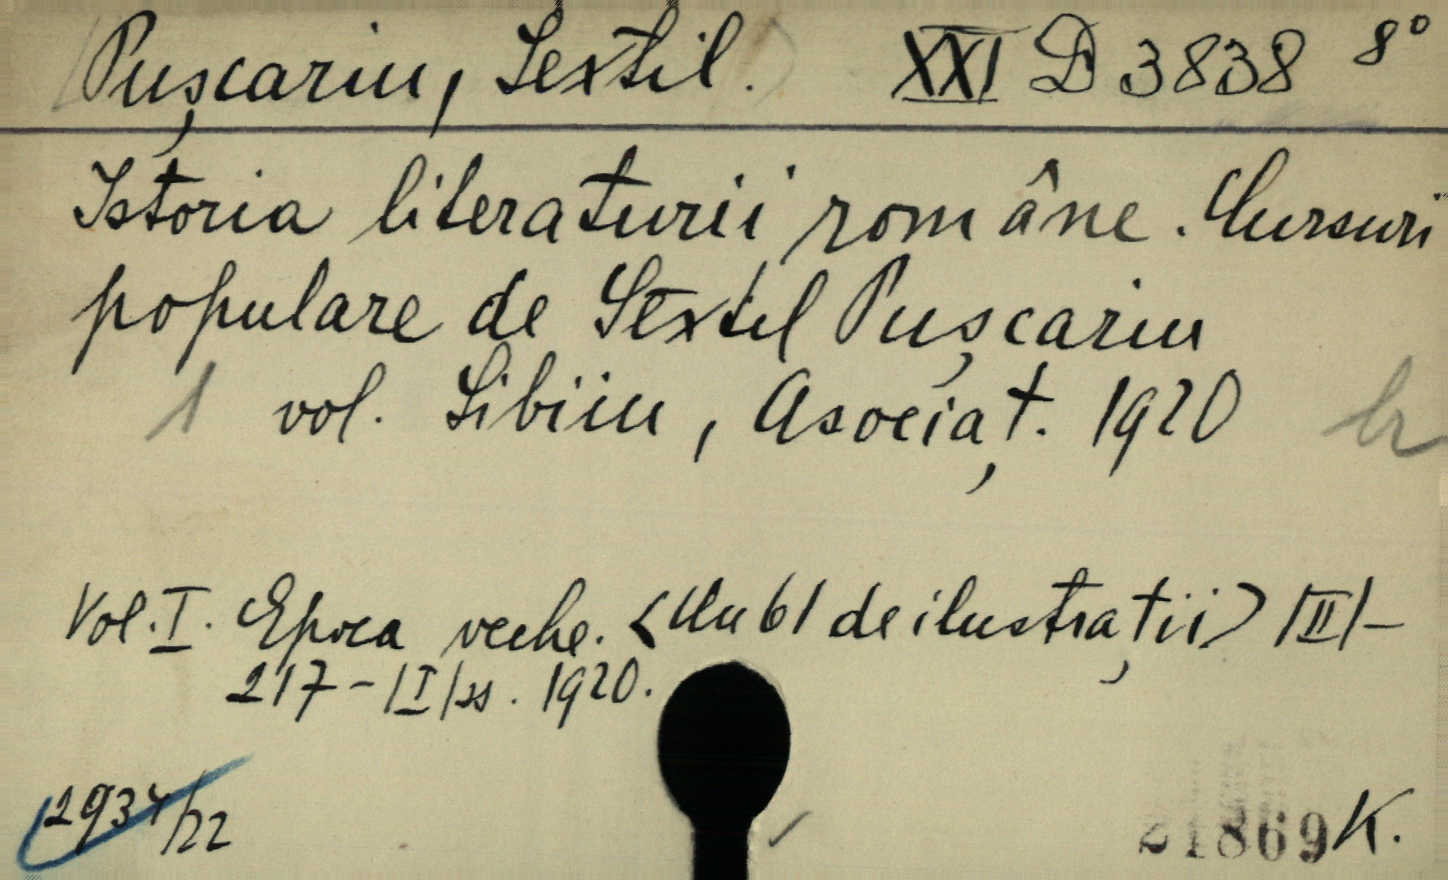 Pușcariu, Sextil. XXI D 3838 8°
Istoria literaturii române. Cursuri
populare de Sextil Pușcariu
1 vol. Sibiiu, Asociaț. 1920
Vol. I. Epoca veche. <Cu 61 de ilustrații> |II|-
217-|I|ss. 1920.
2934/22
21869 K.